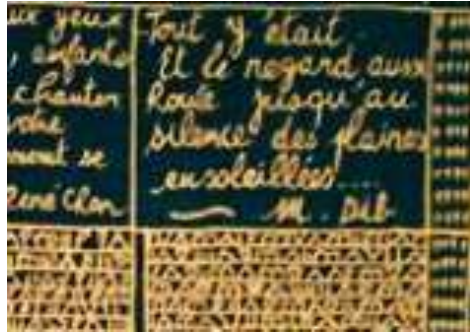 ux yeux
, enfants
chanter
ment se
René Char
Tout y était.
Et le regard aussi
Roule jusqu'au
silence des plaines
ensoleillées....
M. Dib